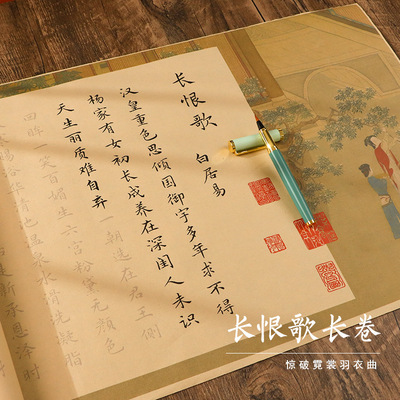 长恨歌
白居易
汉皇重色思倾国御宇多年求不得
杨家有女初长成养在深闺人未识
天生丽质难自弃一朝选在君王侧
回眸一笑百媚生六宫粉黛无颜色
赐浴华清池温泉水滑洗凝脂
是新承恩泽时
长恨歌长卷
惊破霓裳羽衣曲